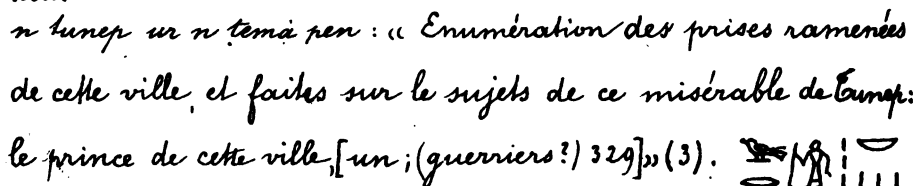 n tunep ur n temȧ pen : « Enumération des prises ramenées
de cette ville, et faites sur le sujets de ce misérable de Tunep:
le prince de cette ville, [un ; (guerriers?) 329] » (3).